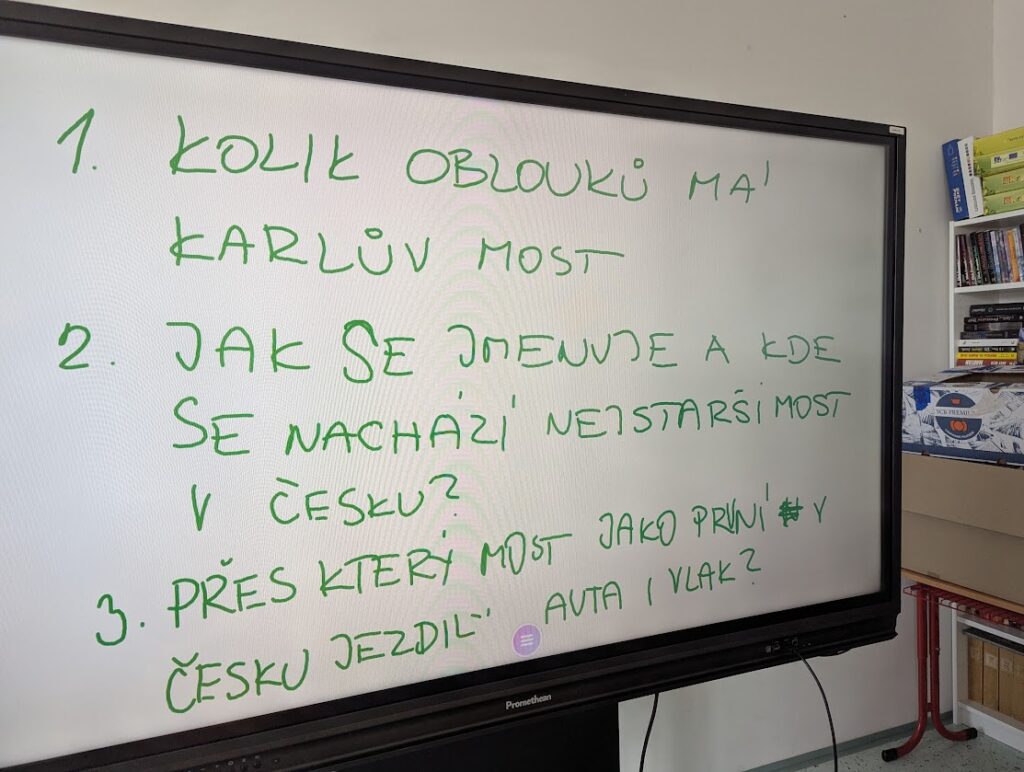 1. KOLIK OBLOUKŮ MÁ
KARLŮV MOST
2. JAK SE JMENUJE A KDE
SE NACHÁZÍ NEJSTARŠÍ MOST
V ČESKU?
3. PŘES KTERÝ MOST JAKO PRVNÍ V
ČESKU JEZDIL AUTA I VLAK?
Promethean